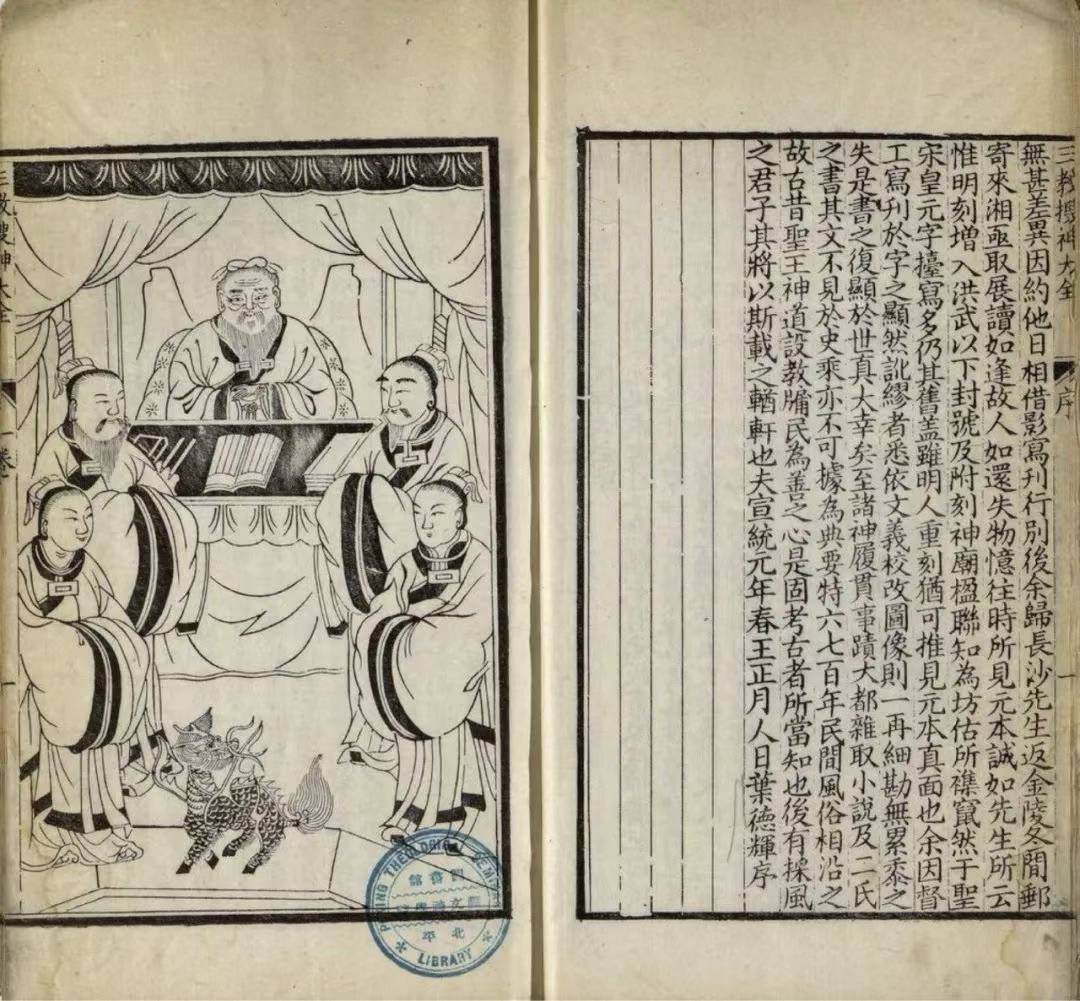 三教搜神大全
序
一
無甚差異因約他日相借影寫刋行別後余歸長沙先生返金陵冬間郵
寄來湘亟取展讀如逢故人如還失物憶往時所見元本誠如先生所云
惟明刻增入洪武以下封號及附刻神廟楹聯知為坊估所襍竄然于聖
宋皇元字擡寫多仍其舊盖雖明人重刻猶可推見元本真面也余因督
工寫刋於字之顯然訛繆者悉依文義校改圖像則一再細勘無累黍之
失是書之復顯於世真大幸矣至諸神履貫事蹟大都雜取小說及二氏
之書其文不見於史乘亦不可據為典要特六七百年民間風俗相沿之
故古昔聖王神道設教牖民為善之心是固考古者所當知也後有採風
之君子其將以斯載之輶軒也夫宣統元年春王正月人日葉德輝序
三教搜神大全
卷
一
THEOLOGICAL
LIBRARY
館書
平北